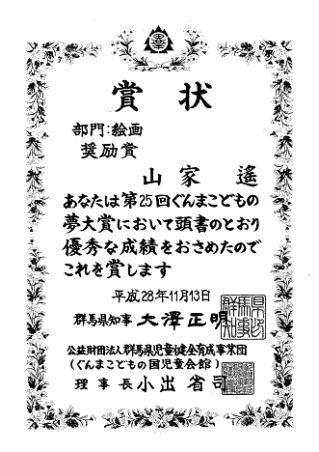 賞状
部門:絵画
奨励賞
山家 遙
あなたは第25回ぐんまこどもの
夢大賞において頭書のとおり
優秀な成績をおさめたので
これを賞します
平成28年11月13日
群馬県知事 大澤正明
公益財団法人群馬県児童健全育成事業団
(ぐんまこどもの国児童会館)
理事長 小出省司